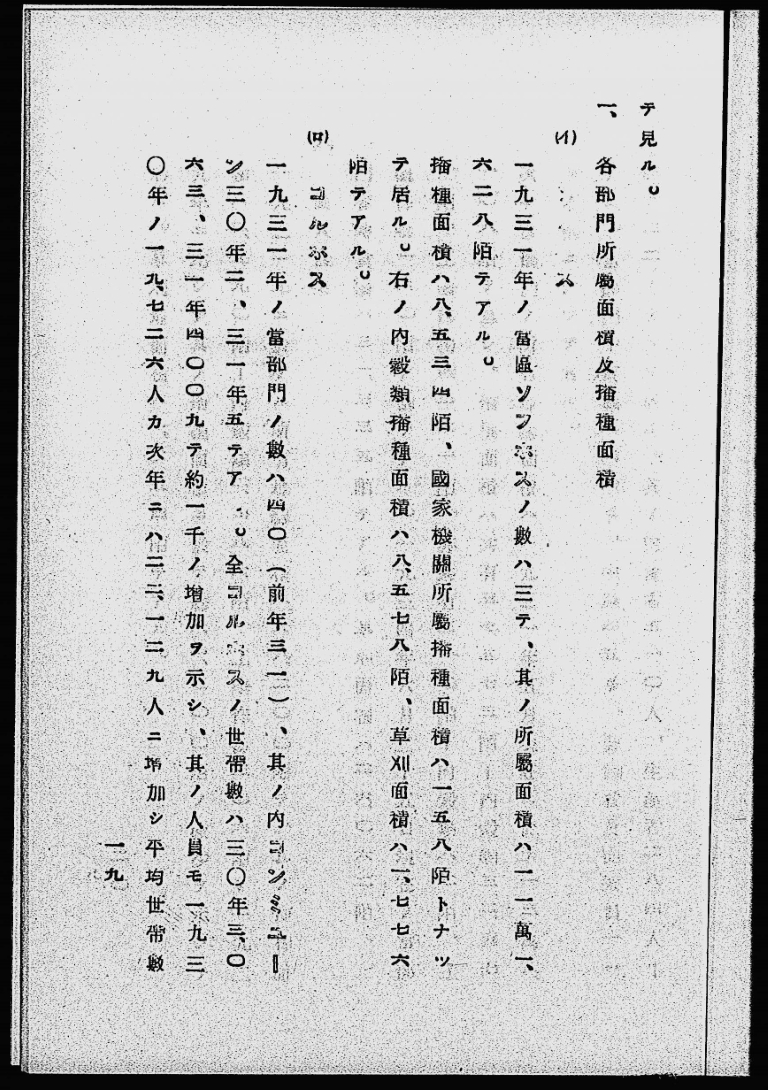 テ見ル。
一、各部門所屬面積及播種面積
(イ) ス
一九三一年ノ當區ソフホスノ數ハ三テ、其ノ所屬面積ハ一一萬一、
六二八陌テアル。
播種面積ハ八、五三四陌、國家機關所屬播種面積ハ一五八陌トナツ
テ居ル。右ノ内穀類播種面積ハ八、五七八陌、草刈面積ハ一、七七六
陌テアル。
(ロ) コルホス
一九三一年ノ當部門ノ數ハ四〇(前年三一)、其ノ内コンミユー
ン三〇年二、三一年五テア 。全コルホスノ世帶數ハ三〇年三、〇
六三、三一年四〇〇九テ約一千ノ增加ヲ示シ、其ノ人員モ一九三
〇年ノ一九、七二六人カ次年ニハ二二、一二九人ニ增加シ平均世帶數
一九